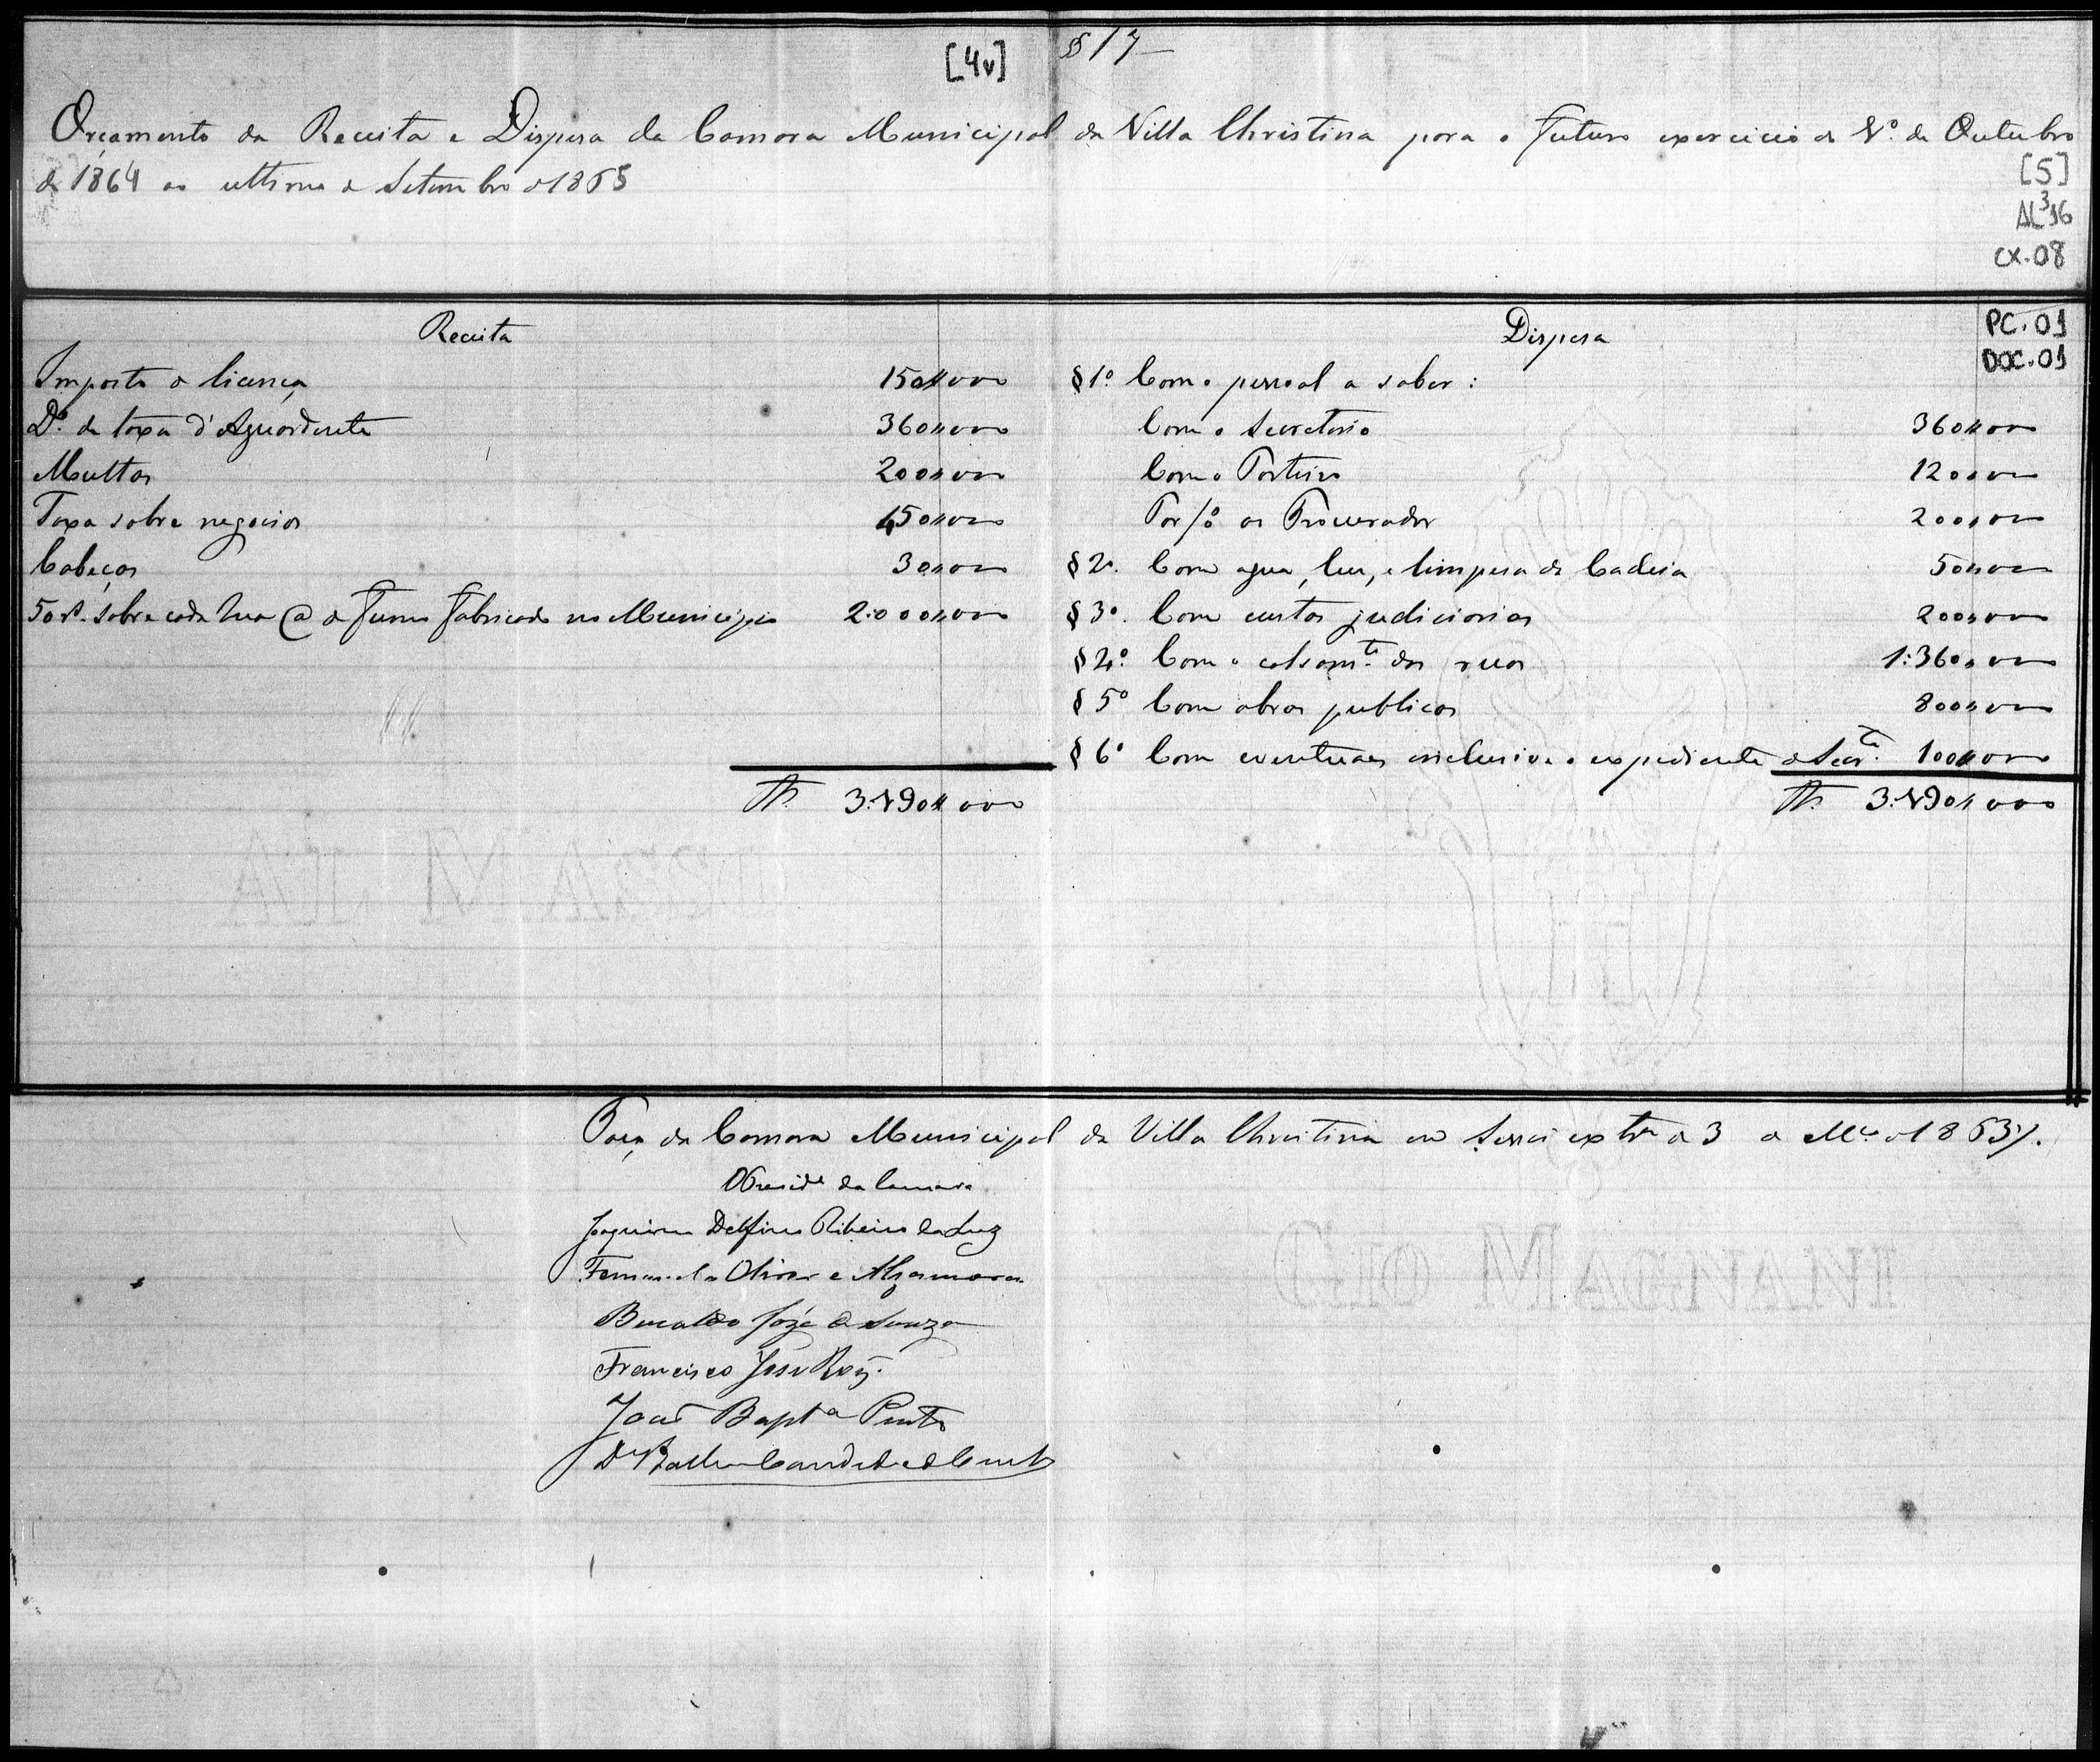 [4v] § 17
Orçamento da Receita e Dispesa da Camara Municipal da Villa Christina para o futuro exercicio de 1º. de Outubro
de 1864 ao ultimo de Setembro d 1865
[5]
AL³16
CX.08
PC.01
DOC.01
Receita
Imposto de licença 150$000
Dº. da taxa d'Aguardente 360$000
Multas 200$000
Taxa sobre negocios 450$000
Cabeças 30$000
50 rs. sobre cada hua @ de fumo fabricado no Municipio 2:000$000
Rs. 3:190$000
Dispesa
§ 1º. Com o pessoal a saber:
Com o Secretario 360$000
Com o Porteiro 120$000
Por /º ao Procurador 200$000
§ 2º. Com agua, luz, e limpesa da Cadeia 50$000
§ 3º. Com custas judiciarias 200$000
§ 4º. Com o calsamto. das ruas 1:360$000
§ 5º Com obras publicas 800$000
§ 6º Com eventuaes inclusive o expediente da Secrta. 100$000
Rs. 3:190$000
Paço da Camara Municipal da Villa Christina em Sessão extrª de 3 de Mço d 1863.
O Preside da Camara
Joaquim Delfino Ribeiro da Luz
Fernando Olinto e Alzamora
José de Souza
Francisco José Roiz.
João Baptª Pinto